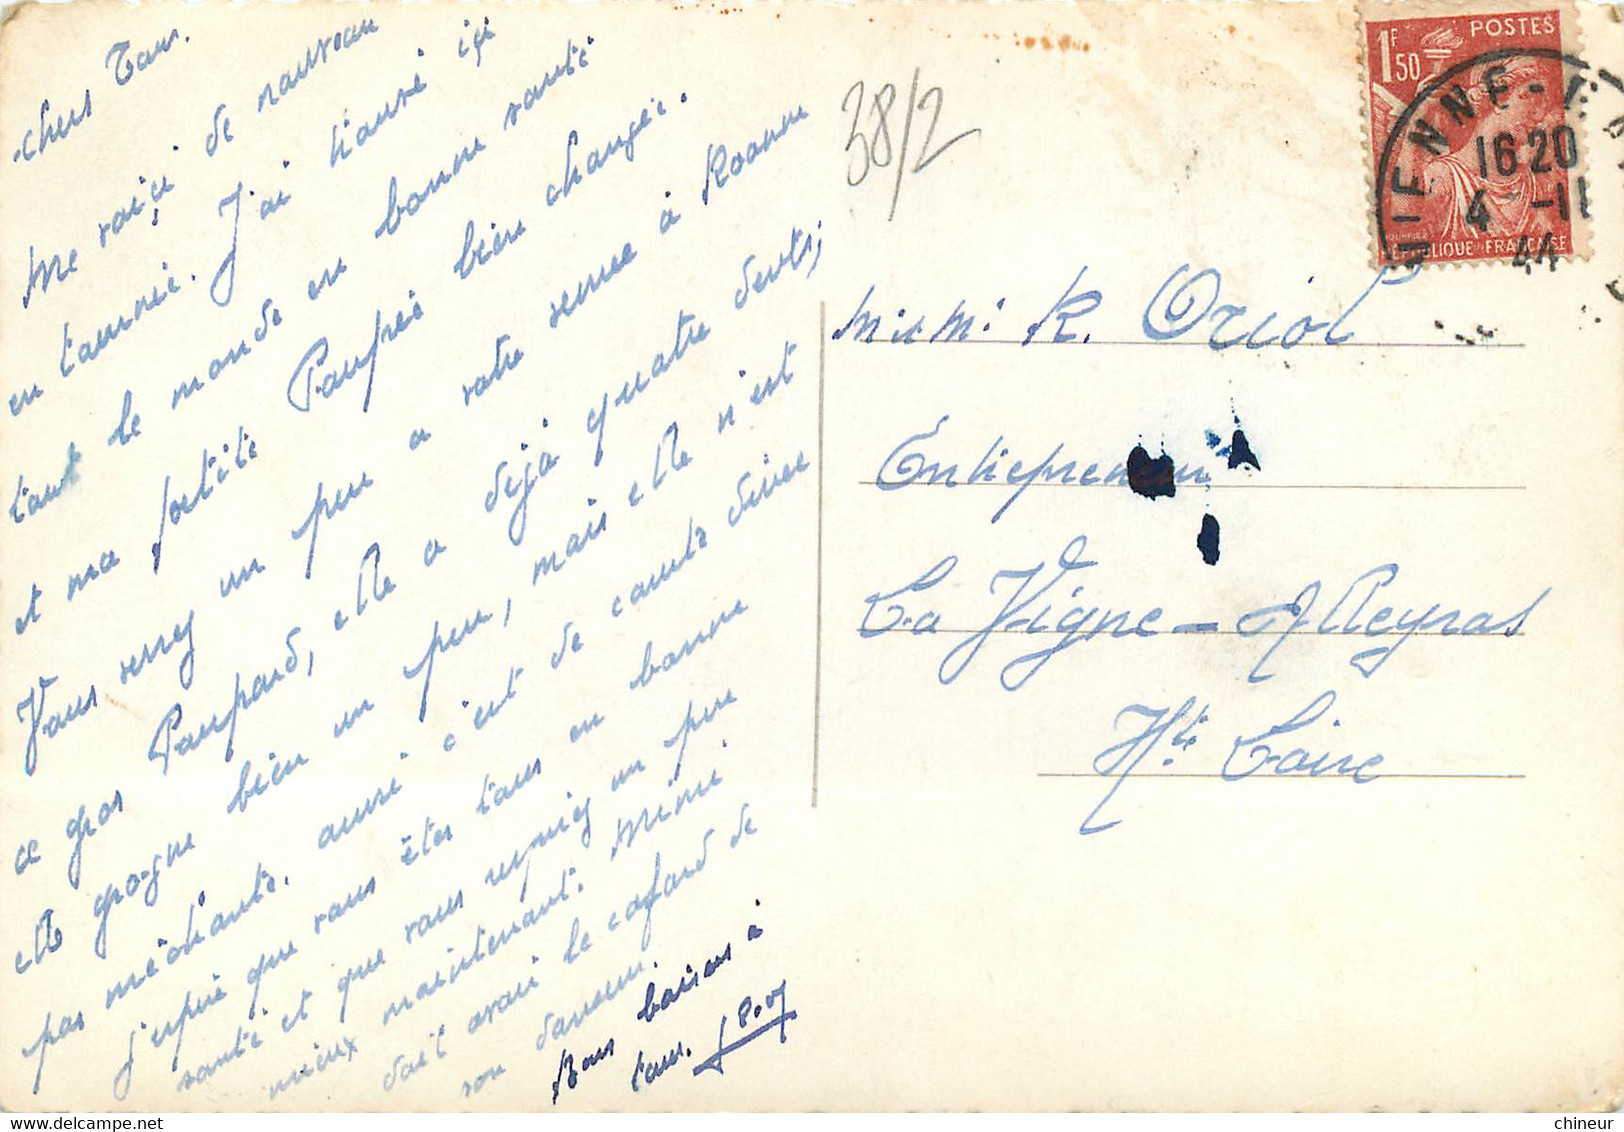 chers Tous.
Me voiçi de nouveau
en tournée. J'ai trouvé içi
tout le monde en bonne santé
et ma petite Poupée bien changée.
Vous verrez un peu a votre venue à Roanne
ce gros Poupard, elle a dèjà quatre dents,
elle grogne bien un peu, mais elle n'est
pas méchante. aussi c'est de
j'espère que vous êtes tous en bonne
santé et que vous respirez un peu
mieux maintenant. Mimi
doit avoir le cafard de
son danseur.
Bons baisers à
tous.
38/2
POSTES
1F50
RÉPUBLIQUE FRANÇAISE
VIENNE
16 20
4 -11
44
Mr Mme R. Oriol
Entrepreneur
La Vigne - Alleyras
Hte Loire
chineur